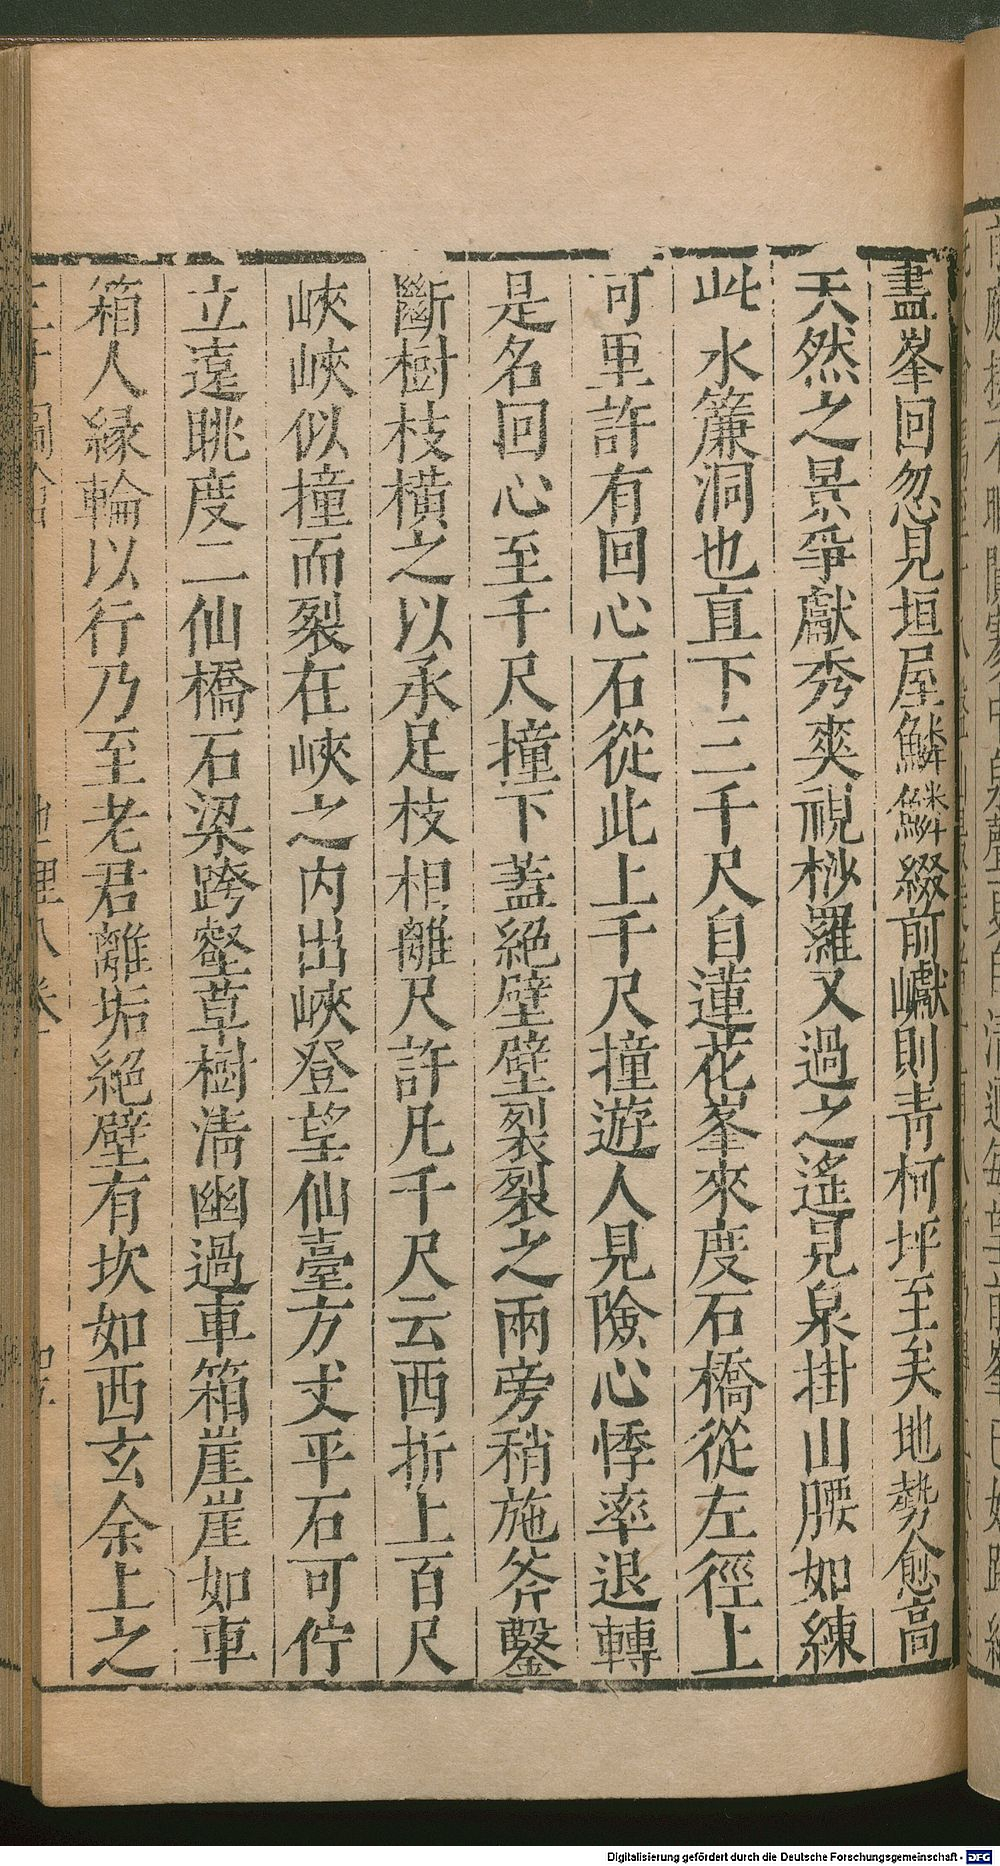 盡峯回忽見垣屋鱗鱗綴前巘則青柯坪至矣地勢愈高
天然之景爭獻秀爽視桫羅又過之遙見泉掛山腰如練
此水簾洞也直下二千尺自蓮花峯來度石橋從左徑上
可里許有回心石從此上千尺撞遊人見險心悸率退轉
是名回心至千尺撞下蓋絕壁壁裂裂之兩旁稍施斧鑿
斷樹枝橫之以承足枝相離尺許凡千尺云西折上百尺
峽峽似撞而裂在峽之內出峽登望仙臺方丈平石可佇
立遠眺度二仙橋石梁跨壑草樹清幽過車箱崖崖如車
箱人緣輪以行乃至老君離垢絕壁有坎如西玄余上之
三才圖會 地理八卷
Digitalisierung gefördert durch die Deutsche Forschungsgemeinschaft - DFG